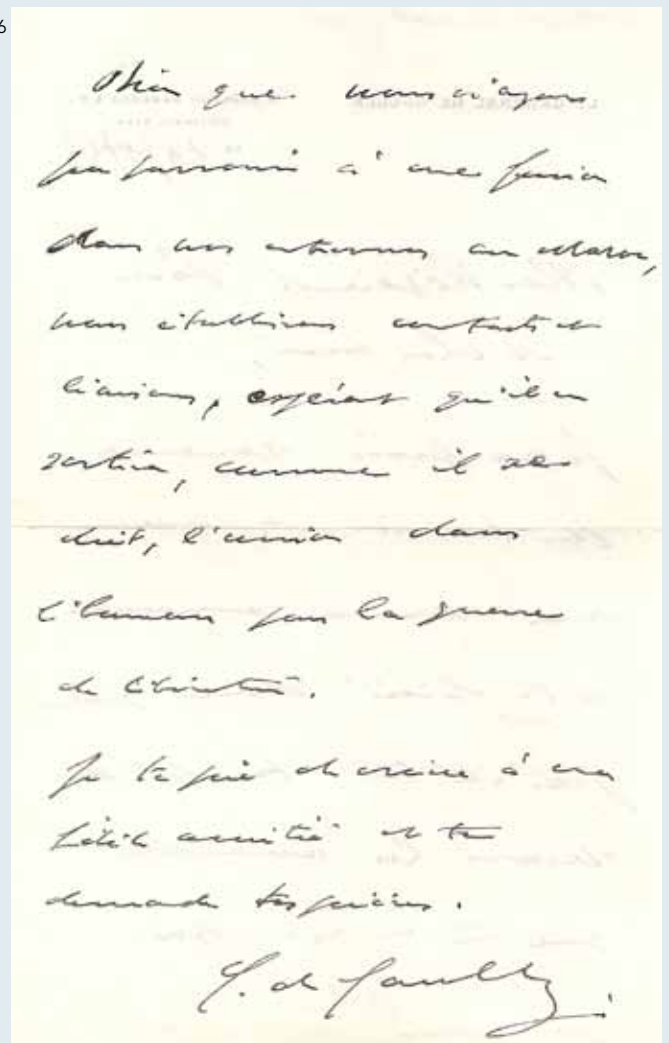 6
Bien que nous n'ayons
pas parvenus à une fusion
dans nos entrevues au Maroc,
nous établirons contacts et
liaisons, espérant qu'il en
sortira, comme il se
doit, l'union dans
l'honneur pour la guerre
de libération.
Je te prie de croire à ma
fidèle amitié et te
demande tes prières.
C. de Gaulle